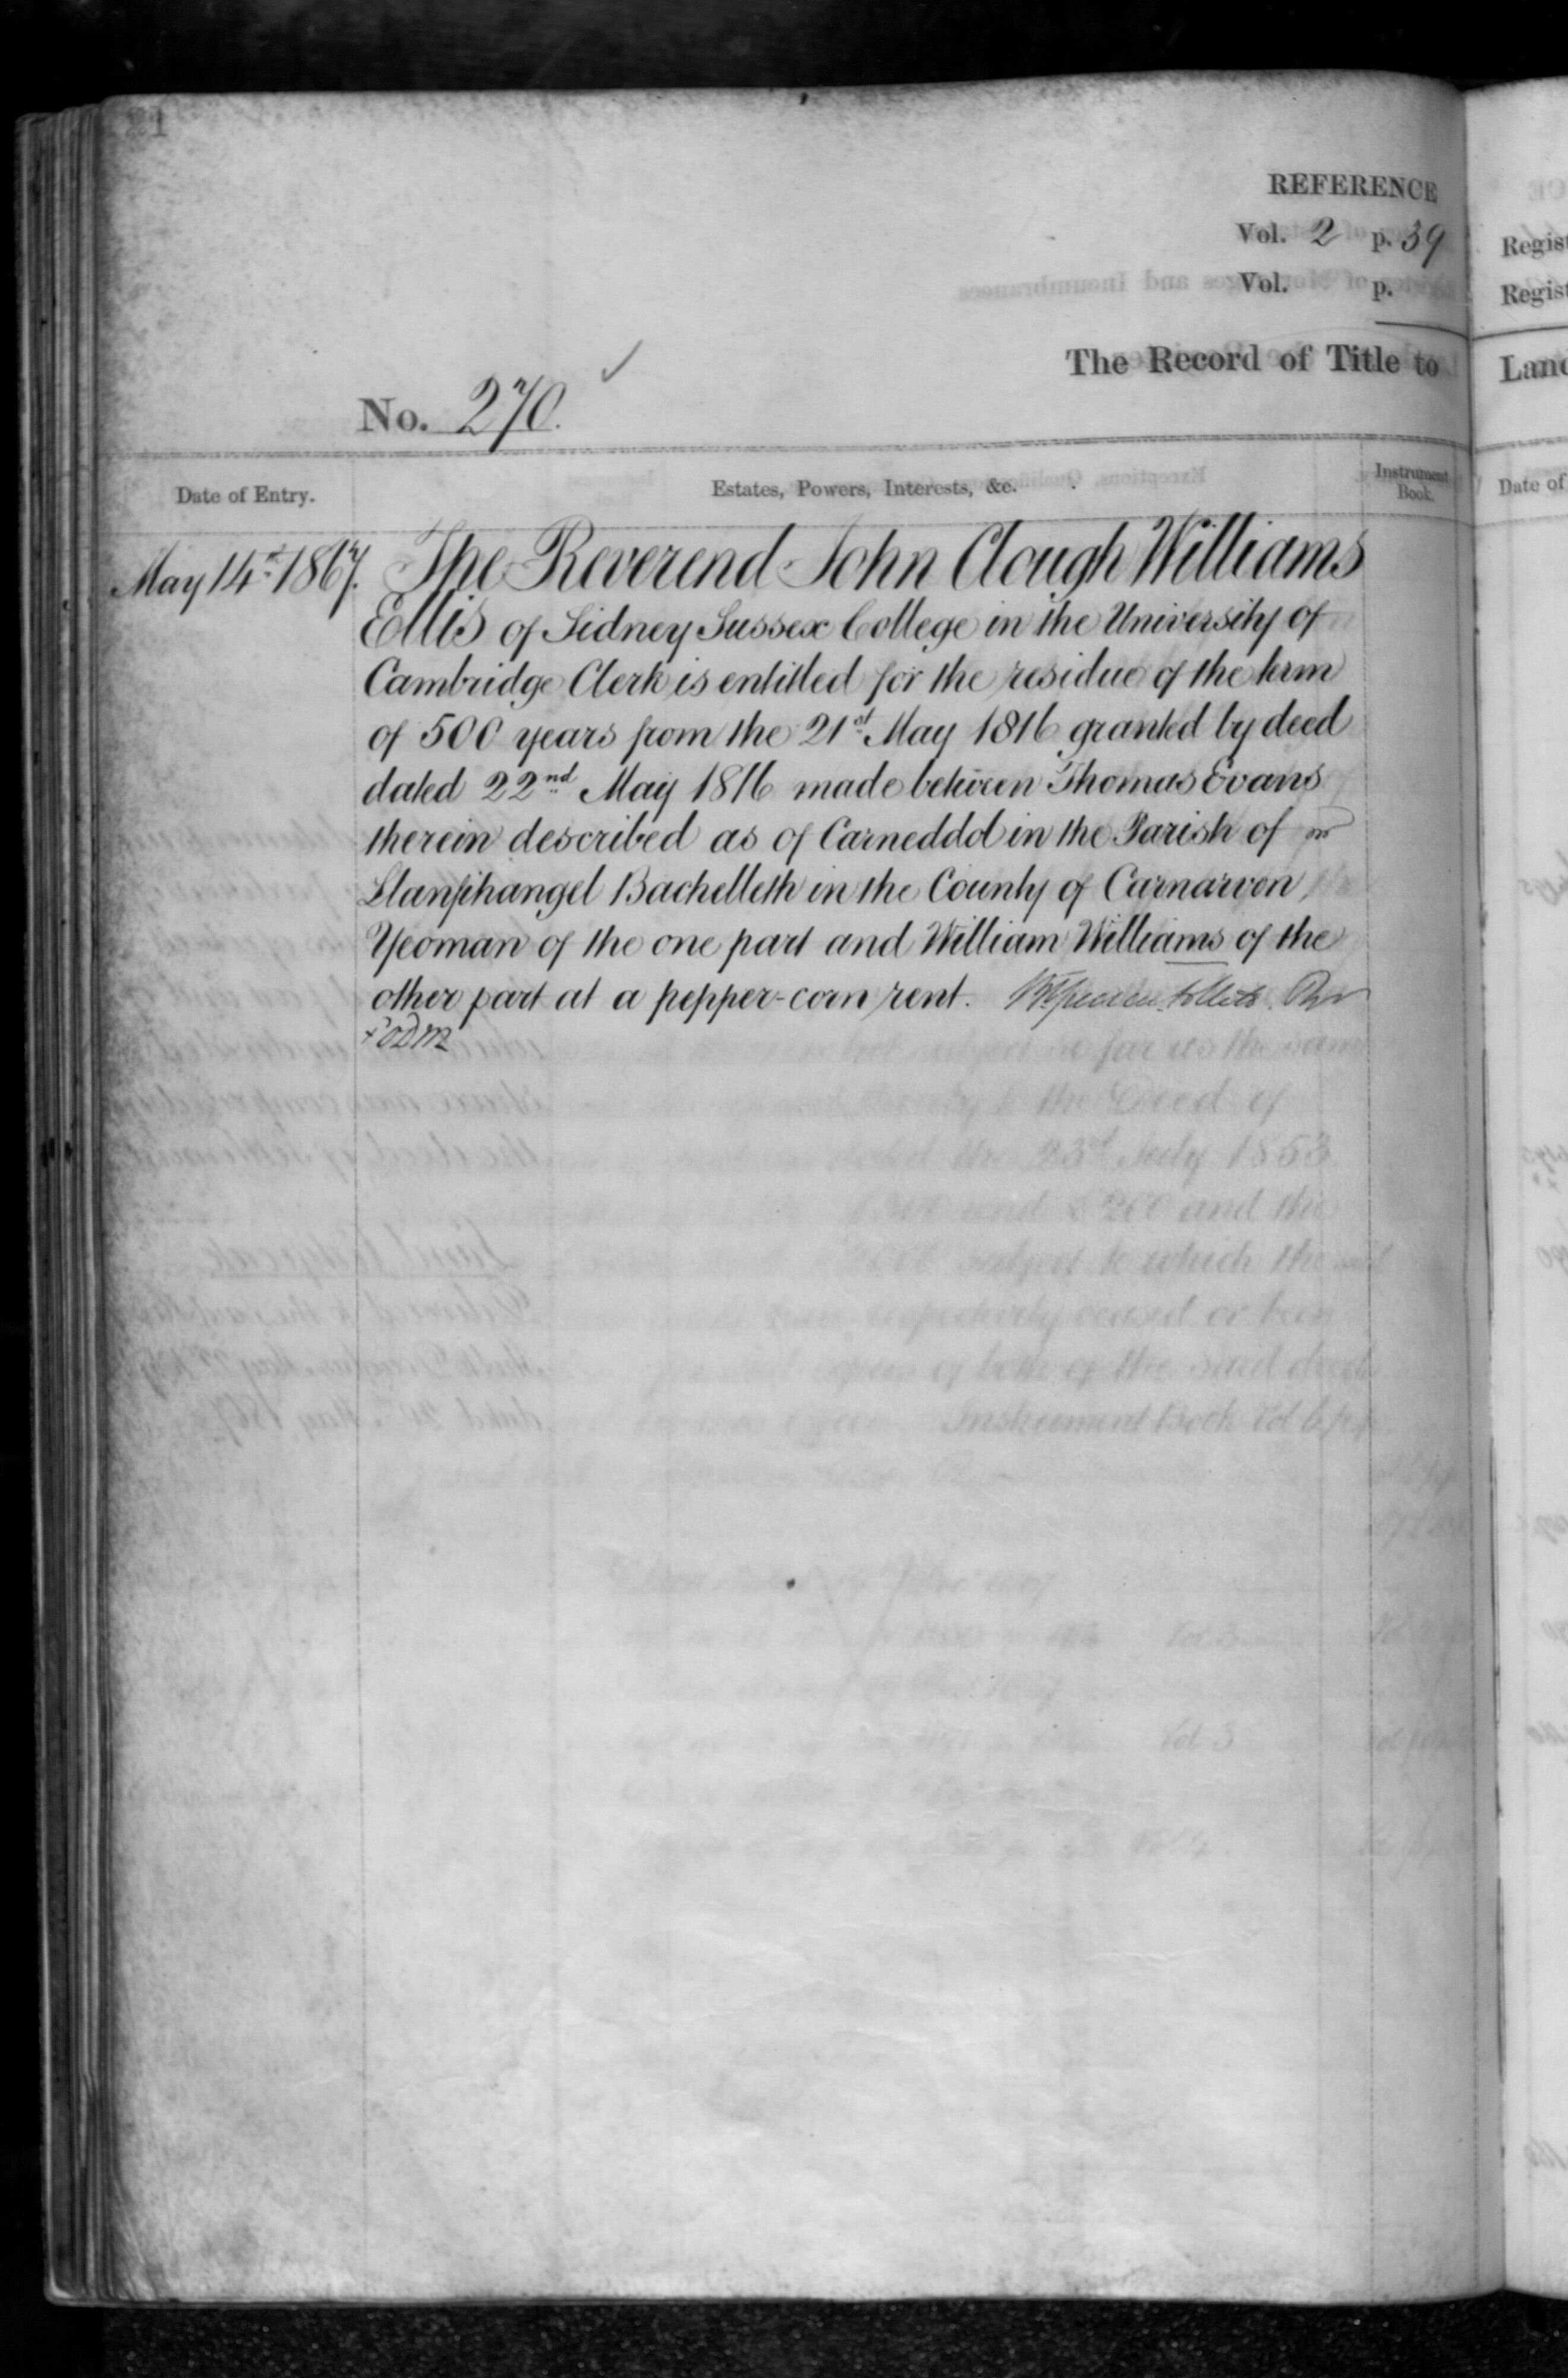 21
REFERENCE
Vol. 2 p. 39
Vol. p.
The Record of Title to
No. 270.
Date of Entry.
Estates, Powers, Interests, &c.
Instrument Book.
May 14th 1867. The Reverend John Clough Williams
Ellis of Sidney Sussex College in the University of
Cambridge Clerk is entitled for the residue of the term
of 500 years from the 21st May 1816 granted by deed
dated 22nd May 1816 made between Thomas Evans
therein described as of Carneddol in the Parish of
Llanfihangel Bachelleth in the County of Carnarvon
Yeoman of the one part and William Williams of the
other part at a pepper-corn rent.
Regist
Regist
Land
Date of